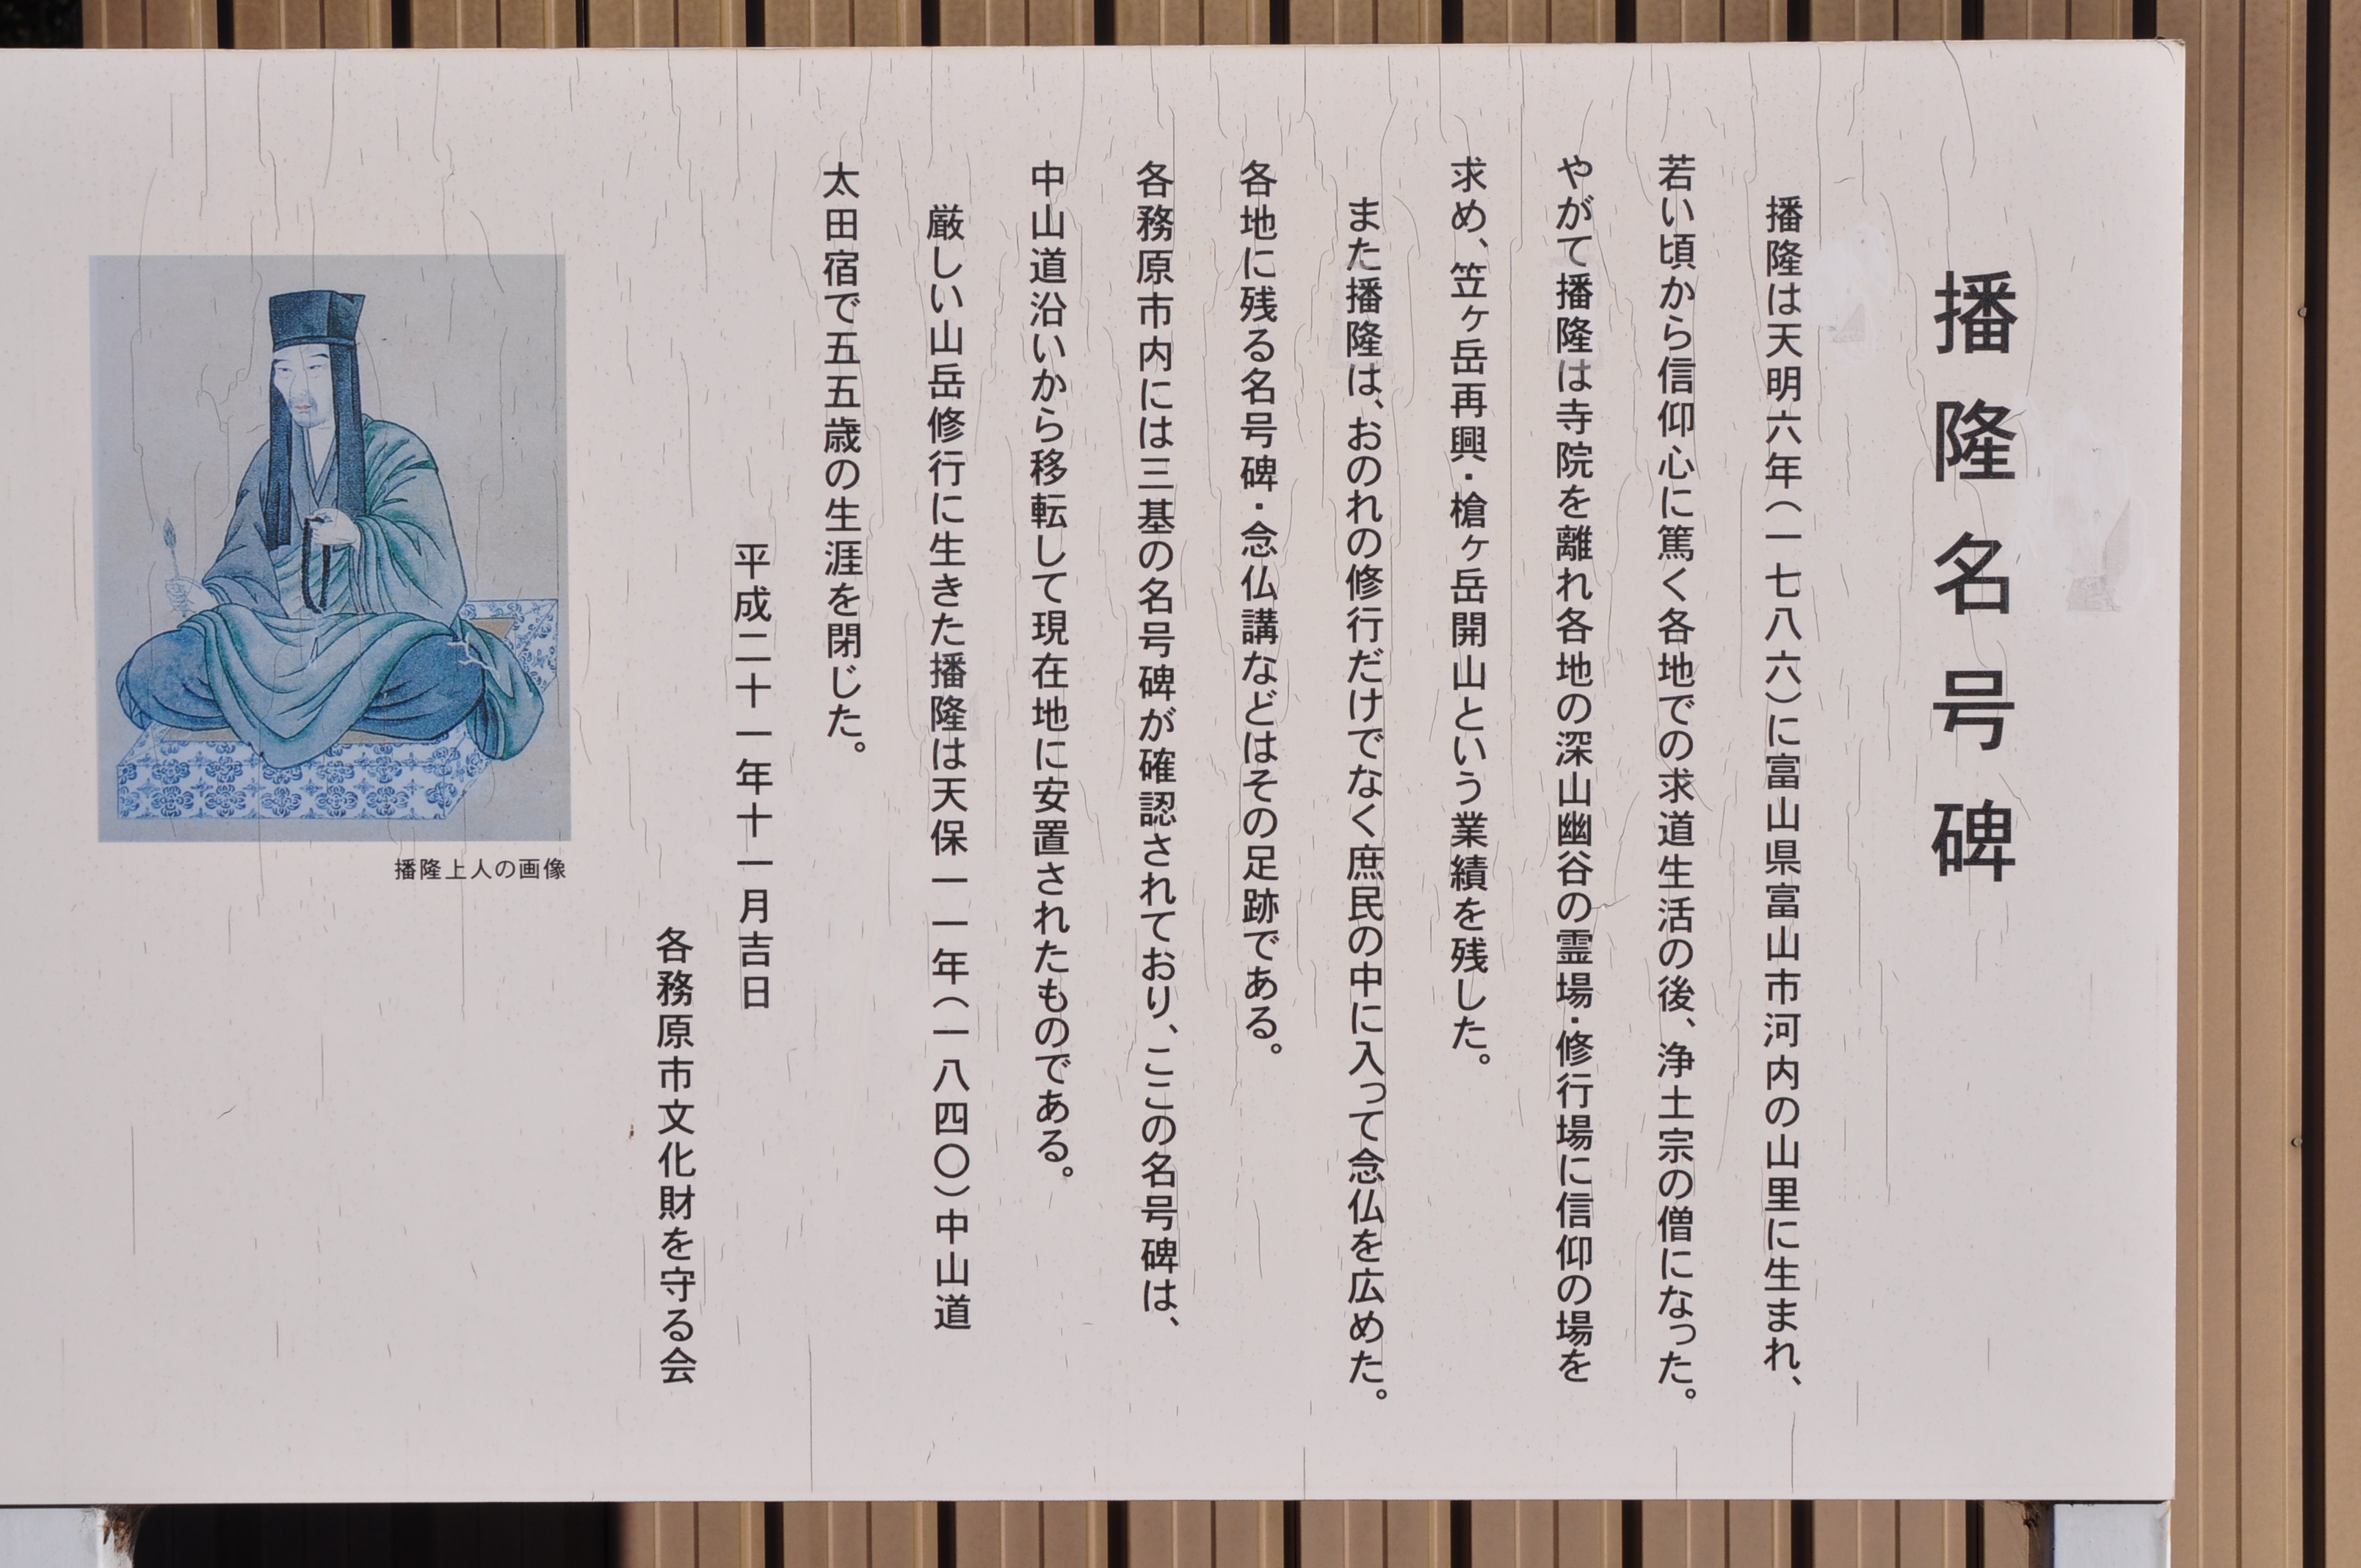 播隆名号碑
播隆は天明六年（一七八六）に富山県富山市河内の山里に生まれ、
若い頃から信仰心に篤く各地での求道生活の後、浄土宗の僧になった。
やがて播隆は寺院を離れ各地の深山幽谷の霊場・修行場に信仰の場を
求め、笠ヶ岳再興・槍ヶ岳開山という業績を残した。
また播隆は、おのれの修行だけでなく庶民の中に入って念仏を広めた。
各地に残る名号碑・念仏講などはその足跡である。
各務原市内には三基の名号碑が確認されており、ここの名号碑は、
中山道沿いから移転して現在地に安置されたものである。
厳しい山岳修行に生きた播隆は天保一一年（一八四〇）中山道
太田宿で五五歳の生涯を閉じた。
平成二十一年十一月吉日
各務原市文化財を守る会
播隆上人の画像